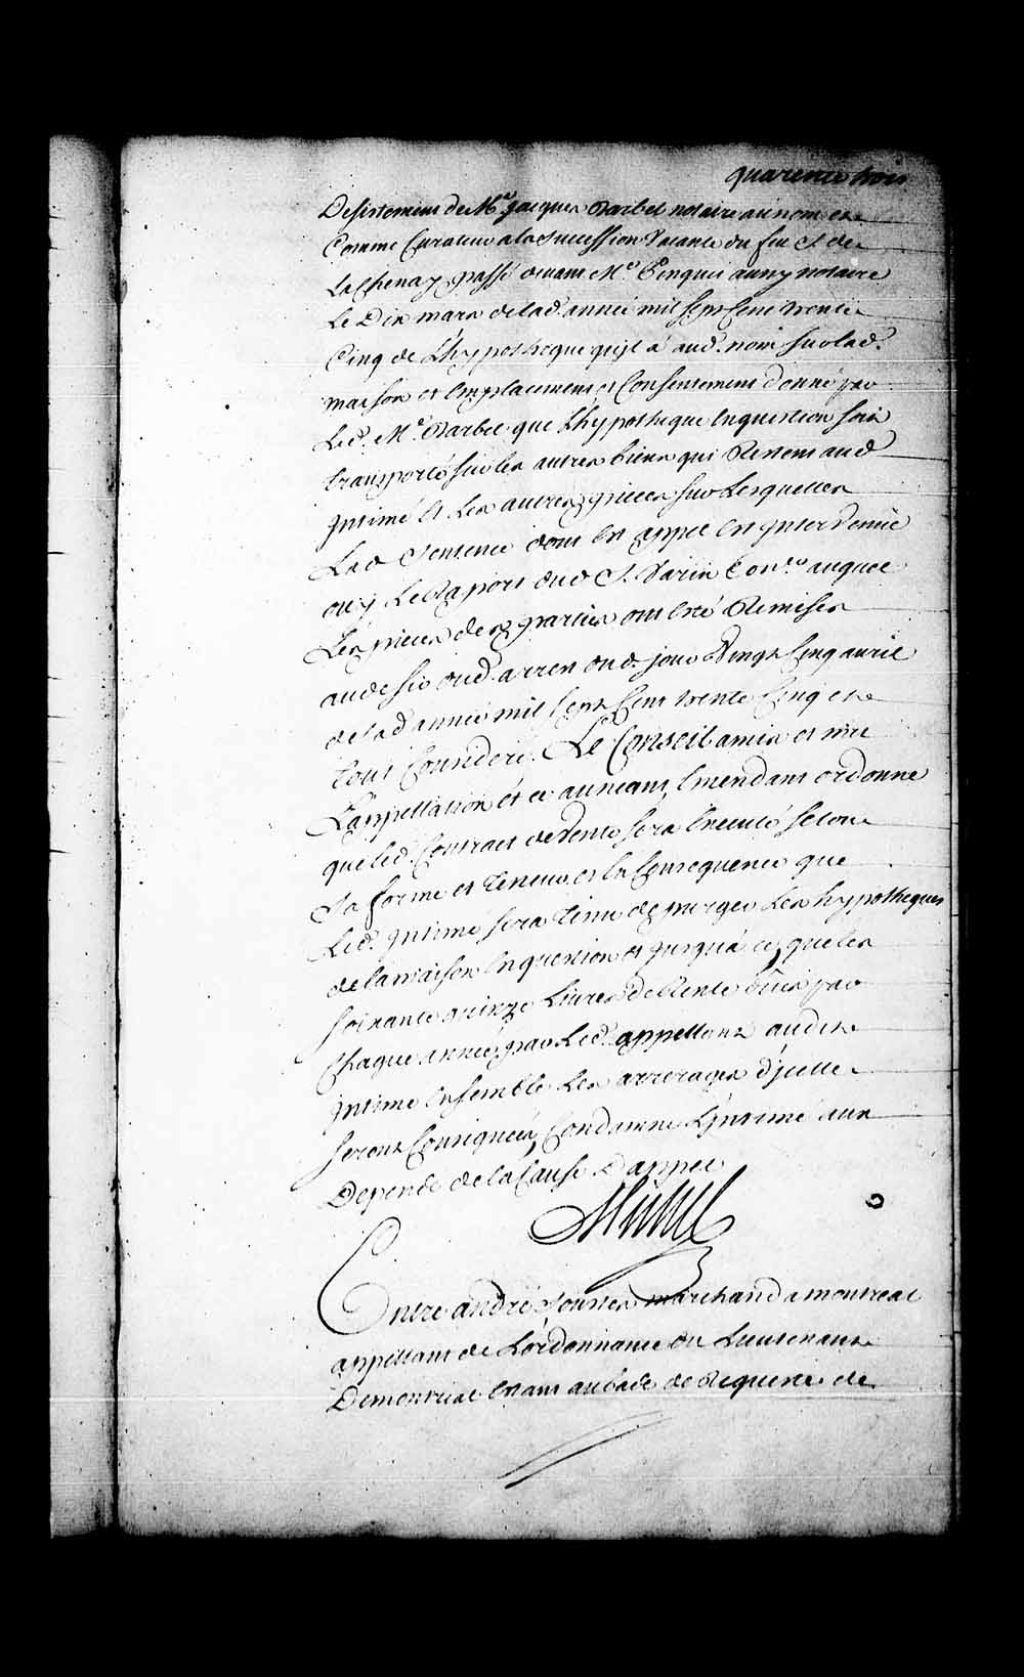 quarente trois
Desistement de Me. Jacques Barbel notaire au nom et
Comme Curateur a la Sucession Vacante du feu S. de
La Chenaye passé devant Me. Pinguet auny notaire
Le Dix mars de lad. année mil sept Cent trente
Cinq de L'hypotheque quil a aud. nom sur lad.
maison et Emplacement et Consentement donné par
Led. Me. Barbel que L'hypotheque En question soit
transporté sur les autres biens qui Restent aud
Intimé Et Les autres pieces sur Lesquelles
La d Sentence dont Est appel Est Intervenue
ouy Le Raport dud S. Varin Conr. auquel
Les pieces des parties ont Eté Remises
au desir dud. arrest dud. jour Vingt Cinq avril
de lad année mil sept Cent trente Cinq et
tout Consideré. Le Conseil a mis et met
L'appellation et ce au neant, Emendant ordonne
que led. Contract de Vente sera Executé selon
Sa forme et Teneur et En Consequence que
Led. Intimé sera tenu de purger Les hypotheques
de la maison En question et jusqu'a ce, que les
soixante quinze Livres de Rente dües par
Chaque année, par Led. appellant audit
Intimé Ensemble Les arrerages d'jcelle
seront Consignées, Condamne L'Intimé aux
Depends de la Cause D'appel
Entre andré Souste marchand a montreal
appellant de L'ordonnance du Lieutenant
De montreal Etant au bas de Requeste de